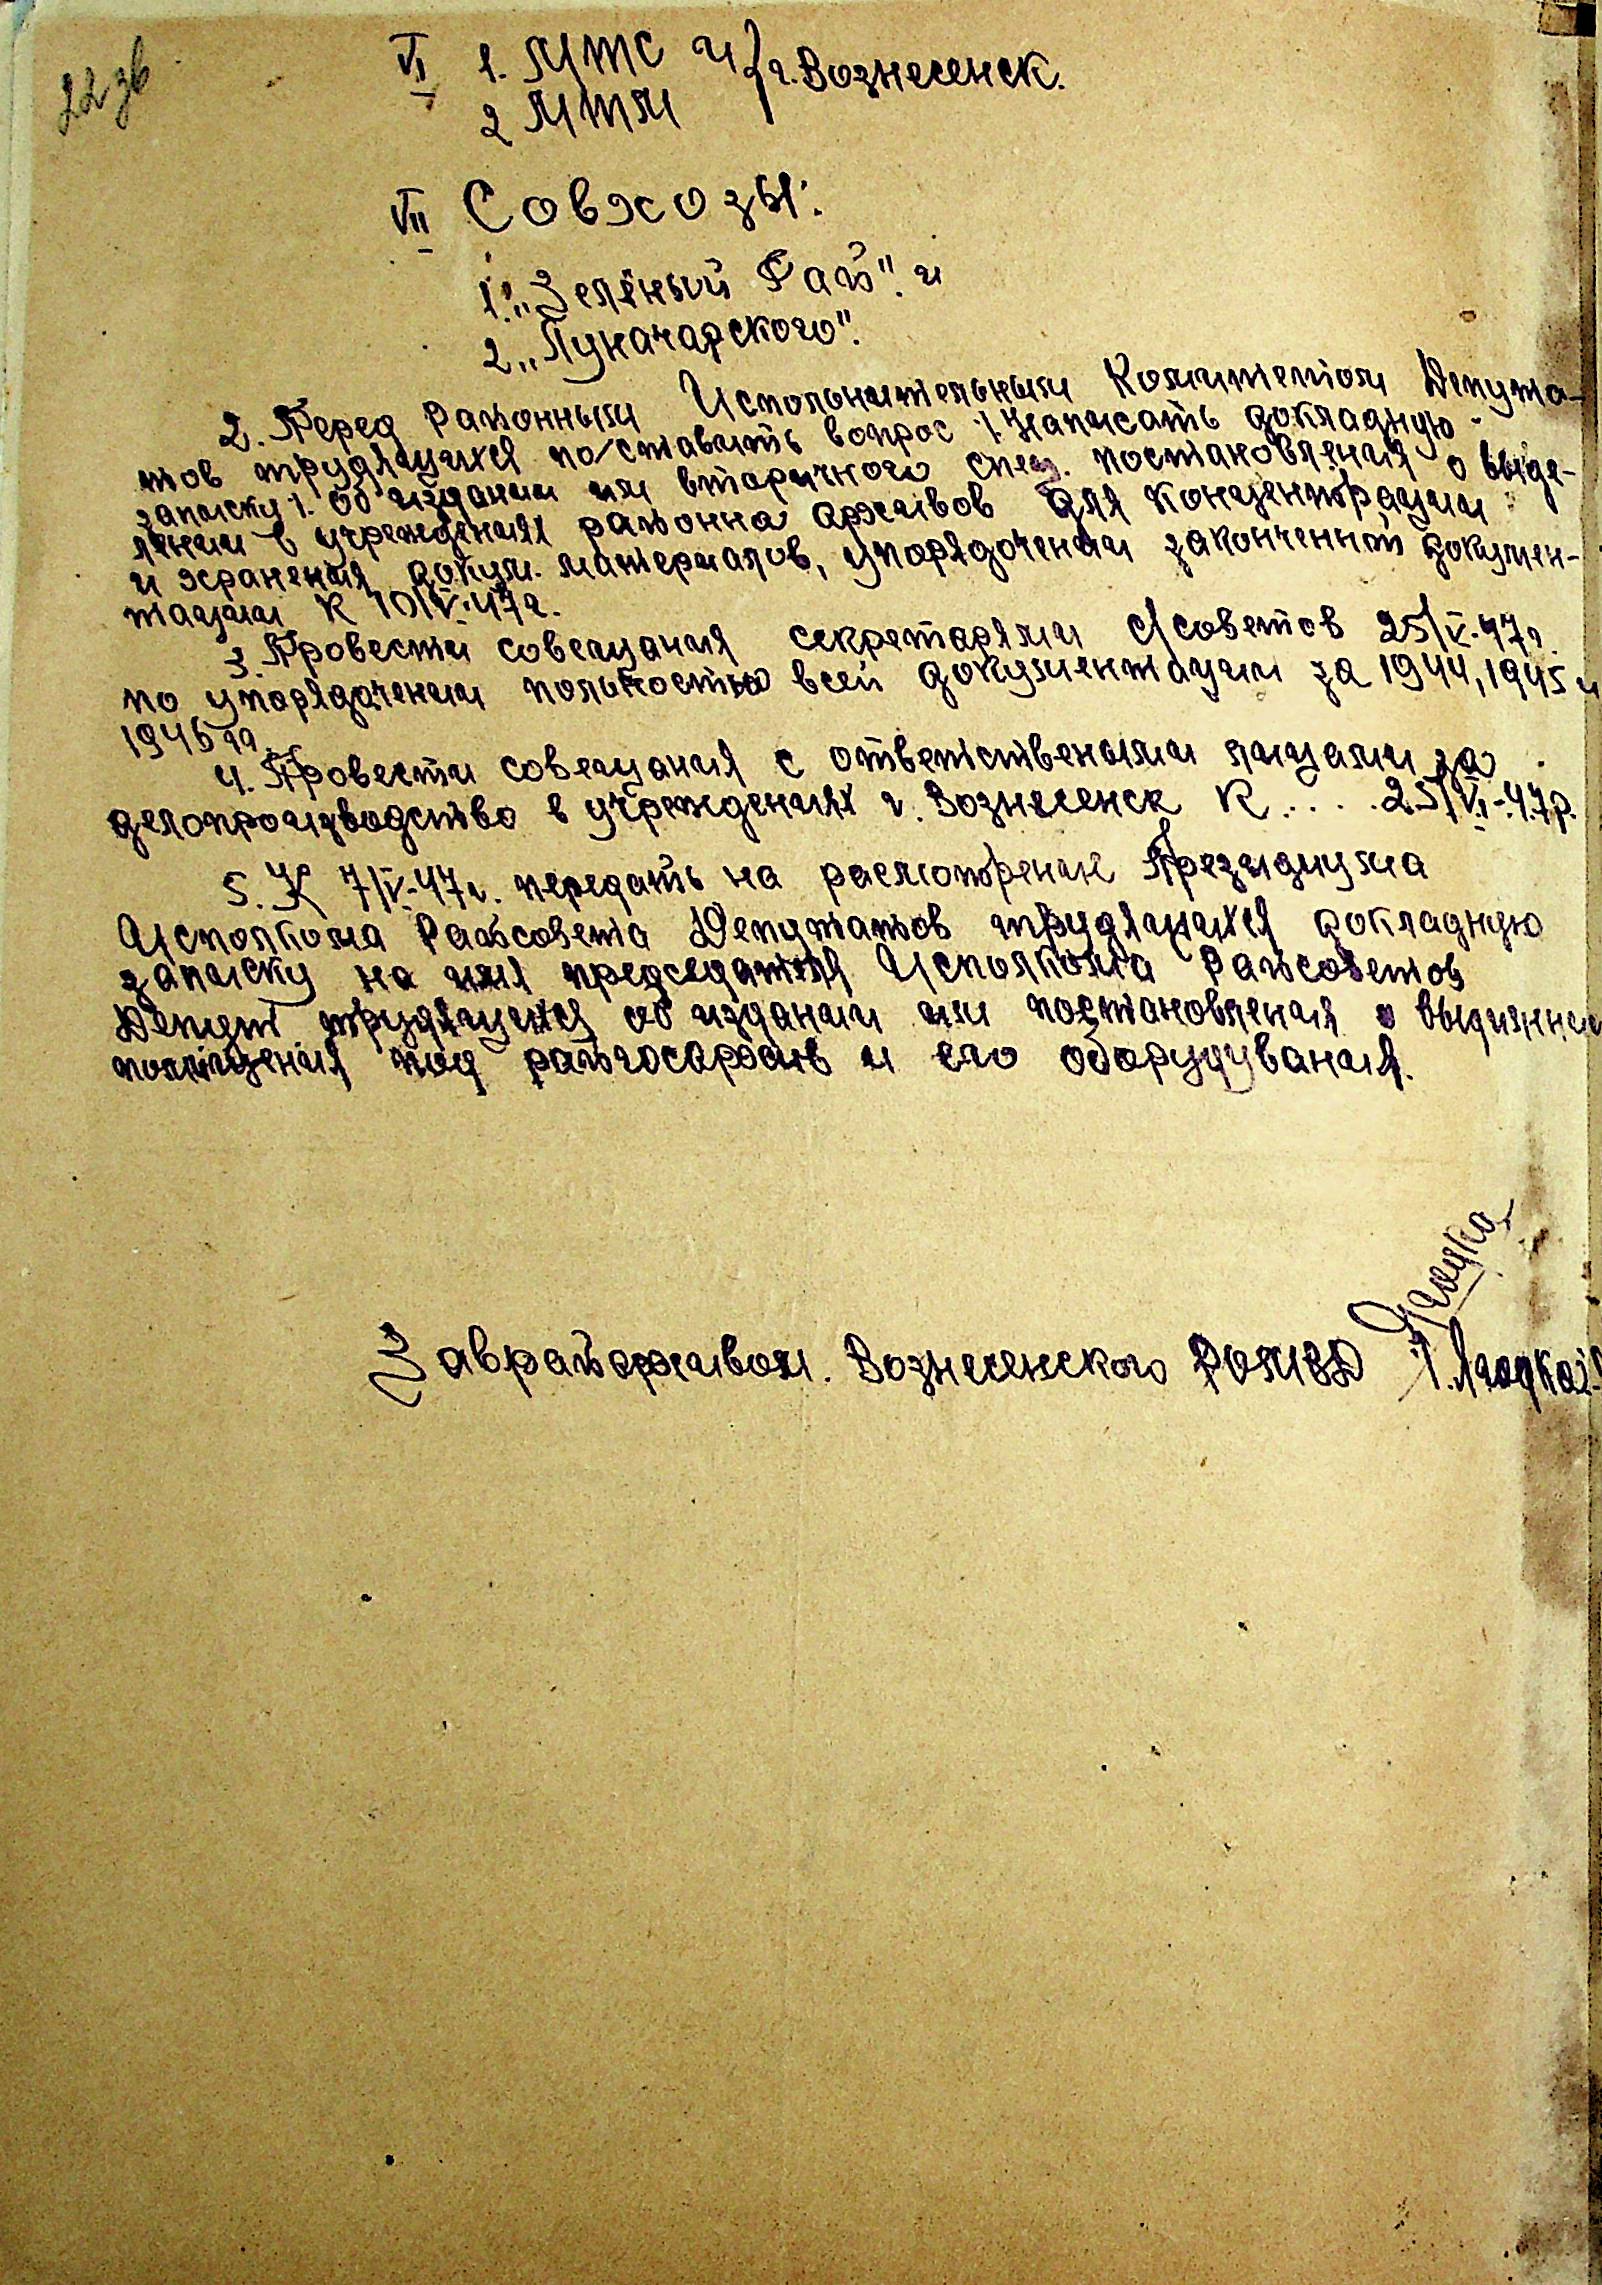 22 зв
VI 1. МТС и } г. Вознесенск.
2 МТМ
VII Совхозы:
1. „Зелёный Гай". и
2 „Луначарского".
2. Перед Районным Исполнительным Комитетом Депута-
тов трудящихся поставить вопрос /. Написать докладную
записку /. об издании им вторичного спец. постановления о выде-
лении в учреждениях района архивов для концентрации
и хранения докум. материалов, упорядочении законченной докумен-
тации к 10/V-47 г.
3. Провести совещания секретарями с/советов 25/V-47 г.
по упорядочении полностью всей документации за 1944, 1945 и
1946 гг.
4. Провести совещания с ответственными лицами за
делопроизводство в учреждениях г. Вознесенск к . . . . 25/VI-47 р.
5. К 7/V-47 г. передать на расмотрение Президиума
Исполкома Райсовета Депутатов трудящихся докладную
записку на имя председателя Исполкома Райсоветов
Депут трудящихся об издании им постановления о
помещения под райгосархив и его оборудувания.
Заврайархивом. Вознесенского РОМВД